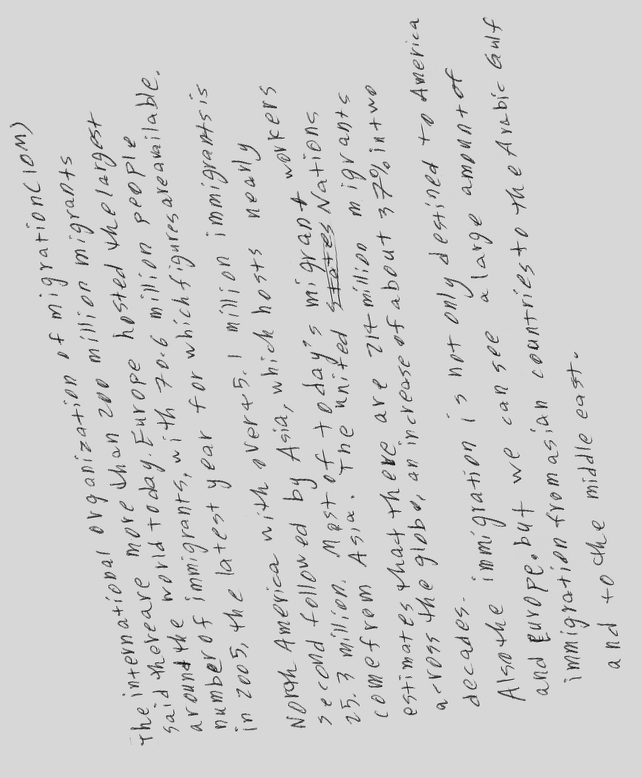 The international organization of migration(IOM)
said thereare more than 200 million migrants
around the world today. Europe hosted the largest
number of immigrants, with 70.6 million people
in 2005, the latest year for which figures are available.
North America with over 45.1 million immigrants is
second followed by Asia, which hosts nearly
25.3 million. Most of today's migrant workers
come from Asia. The united states Nations
estimates that there are 214 million migrants
across the globe, an increase of about 37% in two
decades.
Also the immigration is not only destined to America
and Europe. but we can see a large amount of
immigration from asian countries to the Arabic Gulf
and to the middle east.